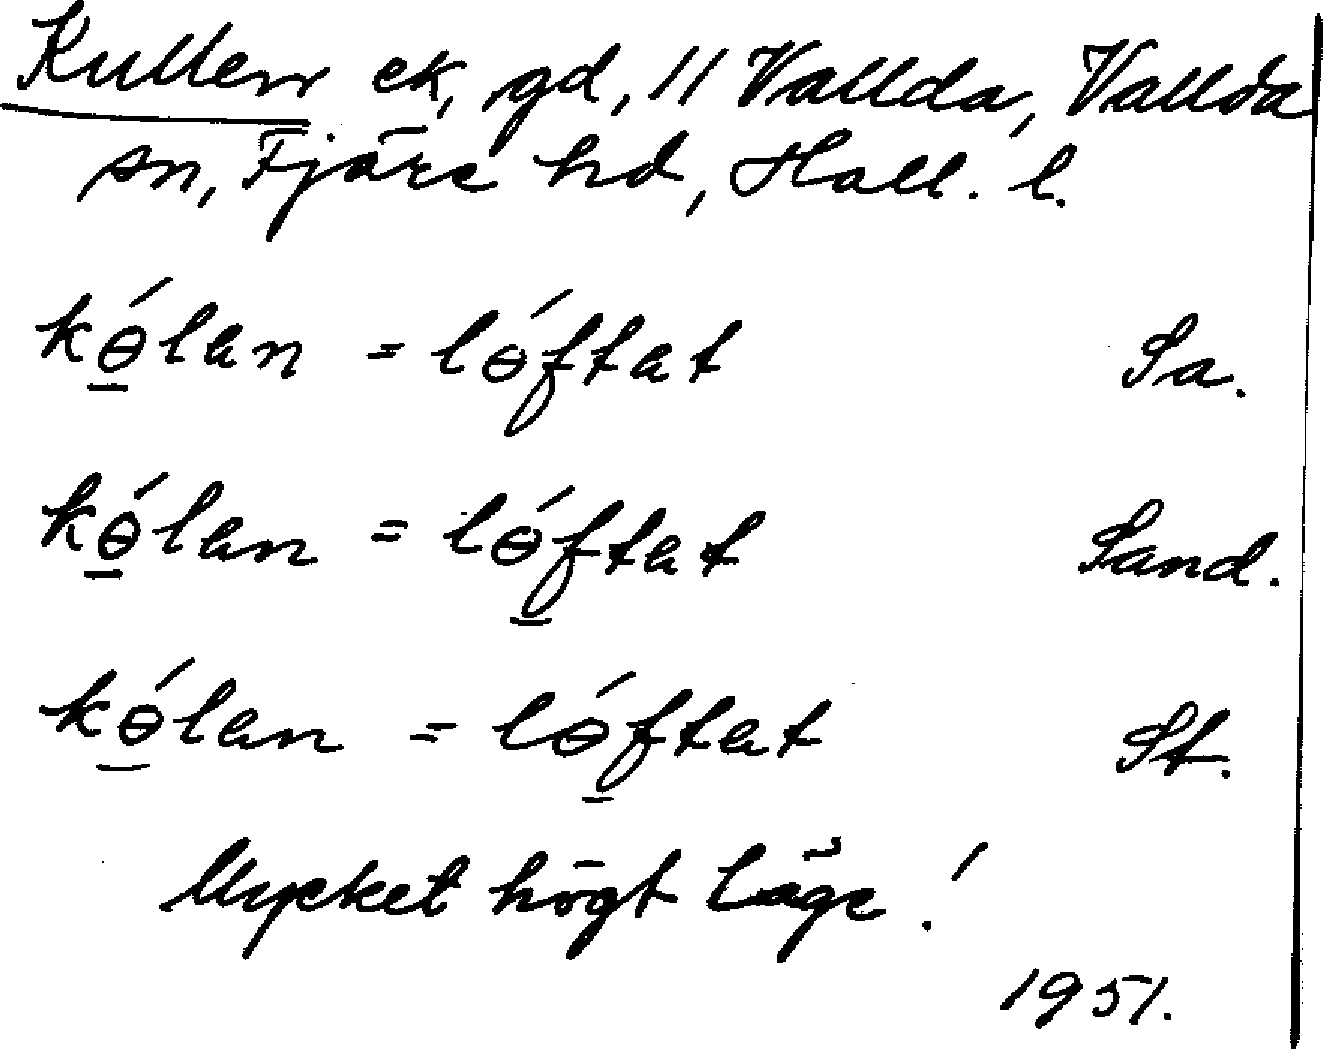 Kullen ek, gd, 11 Vallda, Vallda
sn, Fjäre hd, Hall. l.
kɵ́lan = lɵ́ftat Sa.
kɵ́lan = lɵ́ftat Sand.
kɵ́lan = lɵ́ftat St.
Mycket högt läge!
1951.